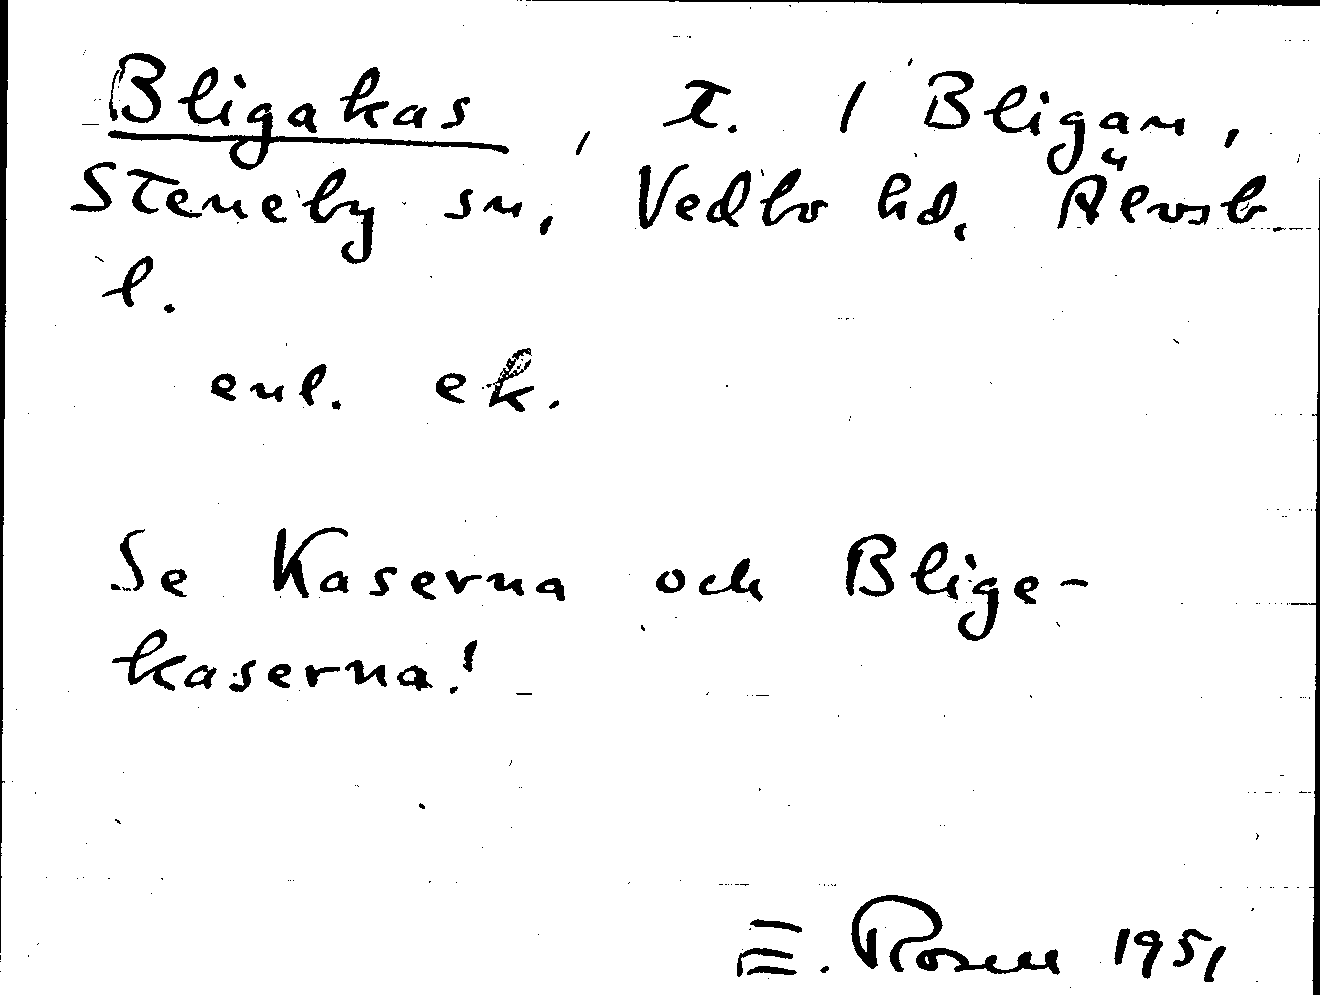 Bligakas, t. 1 Bligan,
Steneby sn, Vedbo hd, Älvsb.
l.
enl. ek.
Se Kaserna och Blige-
kaserna!
E. Rosen 1951